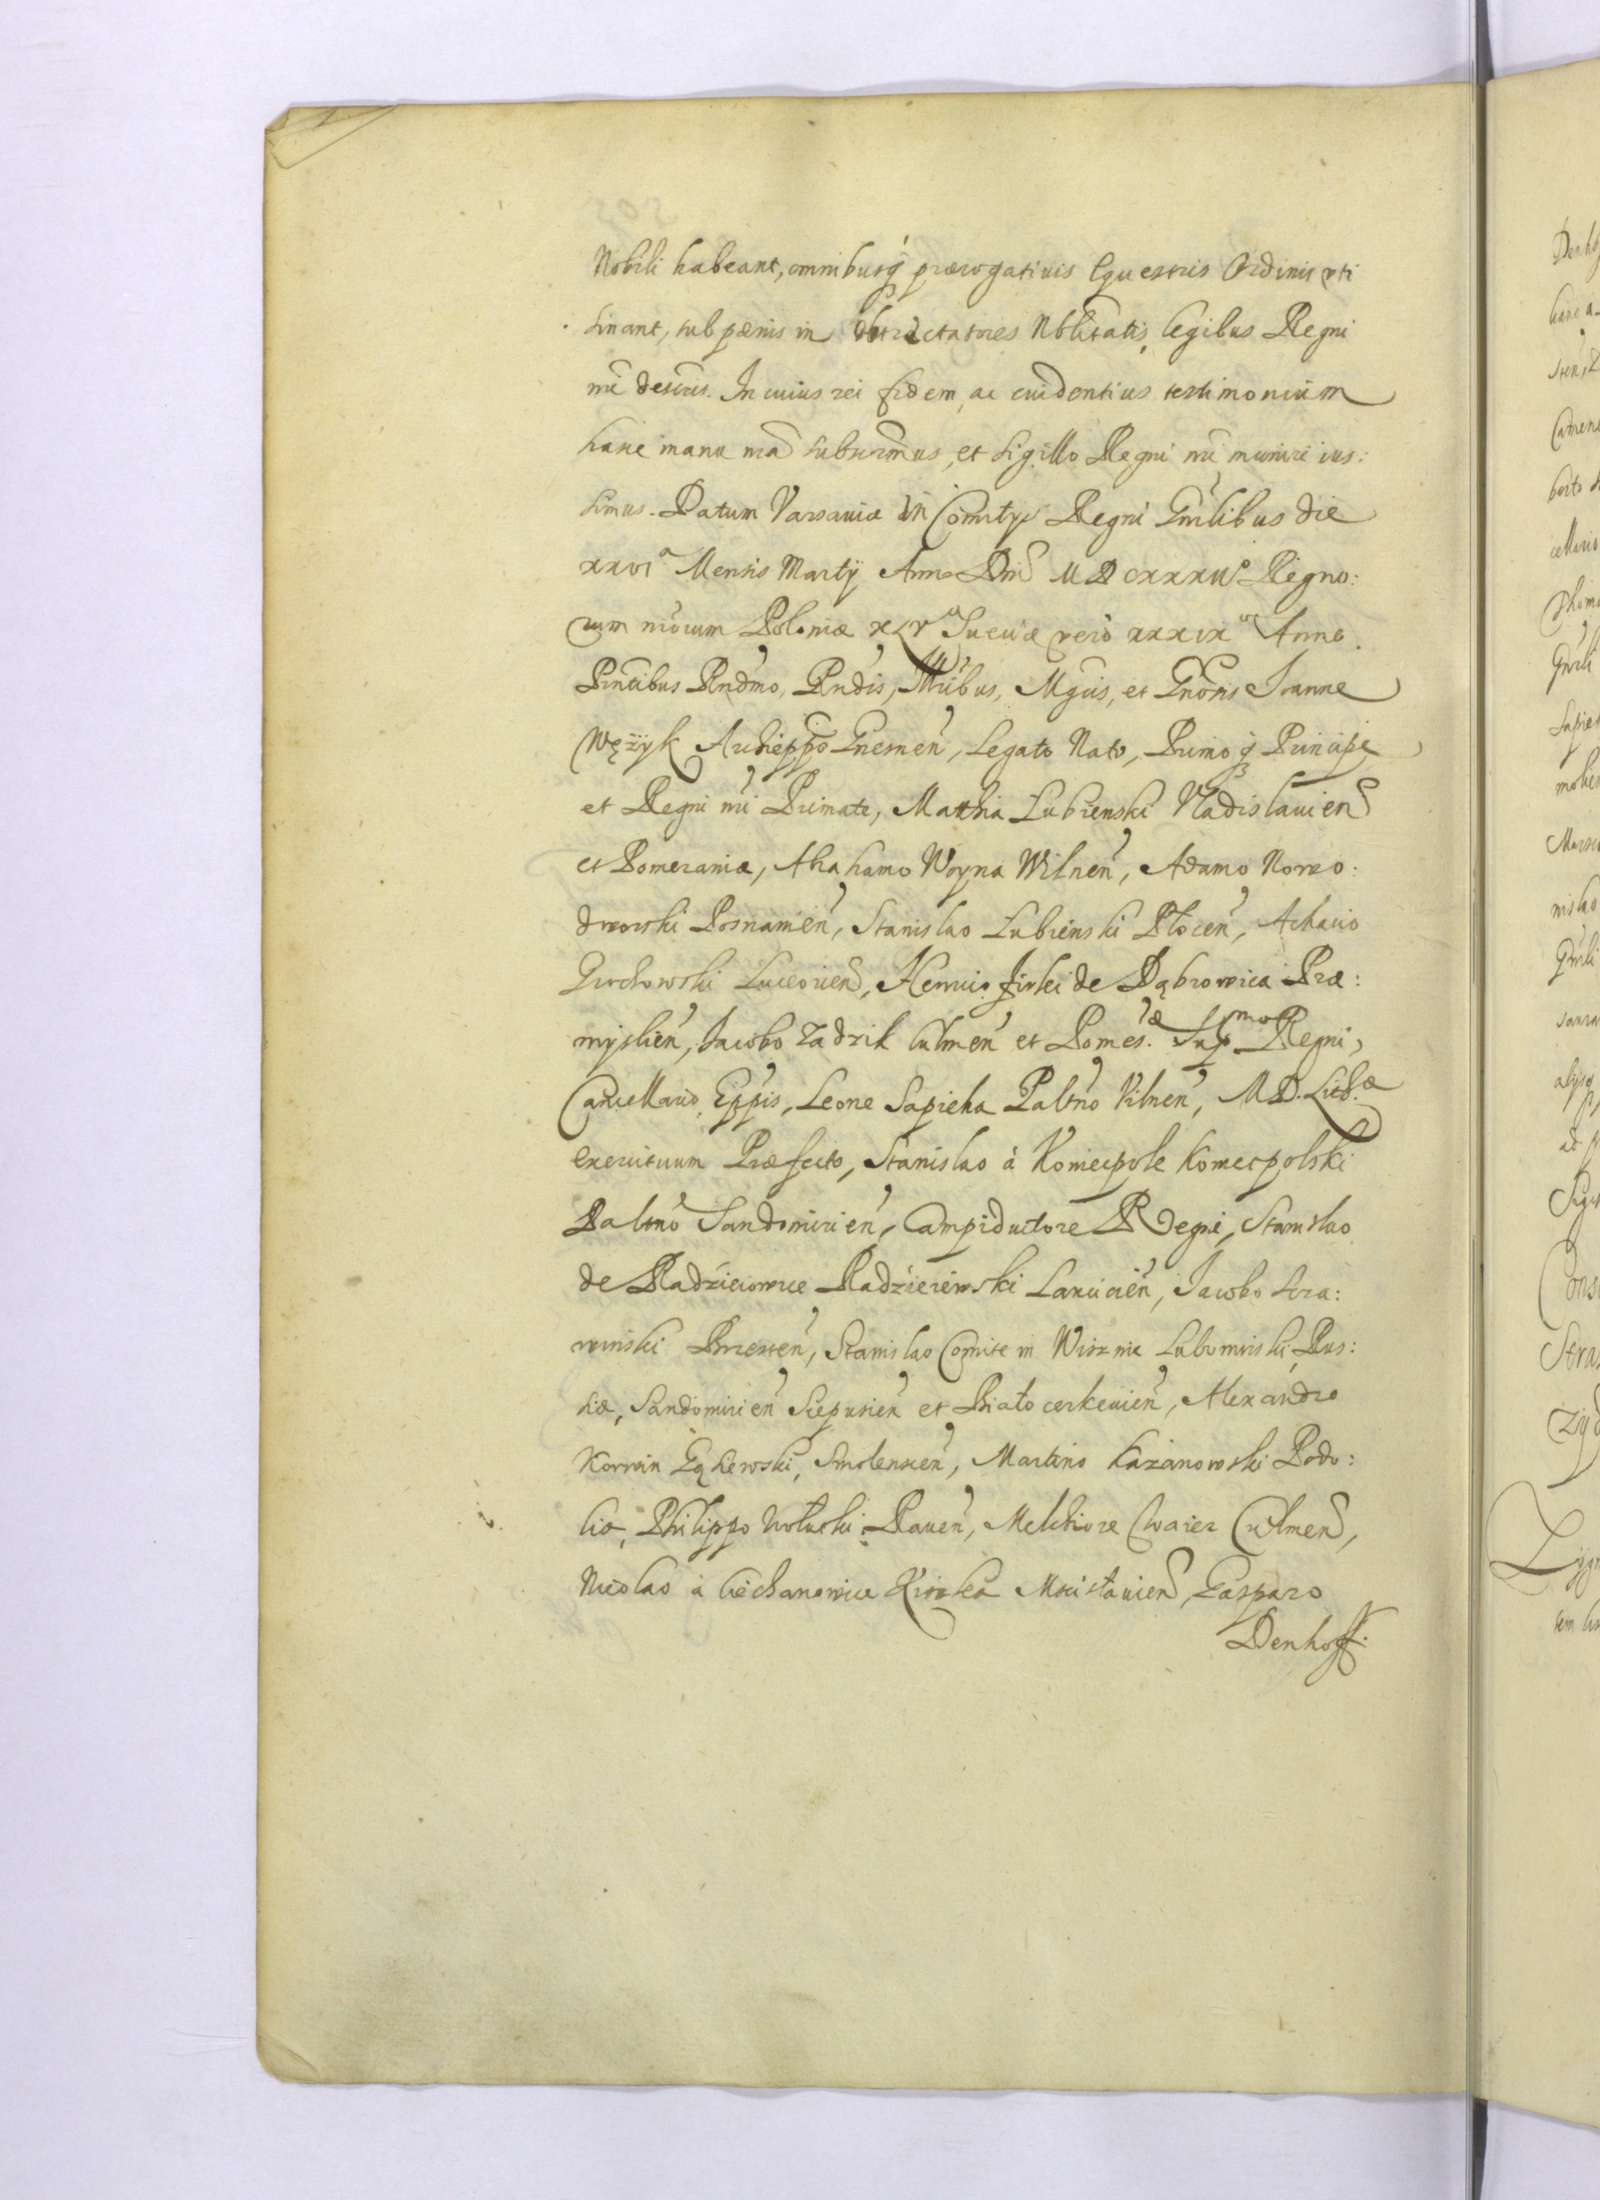 Nobili habeant, omnibusq́ prærogatiuis Equestris Ordinis vti
sinant, sub pœnis in Obtrectatores Nblitatis, legibus Regni
nri descris. In cuius rei fidem, ac euidentius testimonium
hanc manu nra subscrimus, et sigillo Regni nri muniri ius:
simus. Datum Varsauiæ in Comitys Regni Gnrlibus die
xxvi a Mensis Martij Anno Dni MDCXXXII o Regno:
rum nrorum Poloniæ XLV o Sueciæ vero XXXIX o Anno.
Prntibus Rndmo, Rndis, Illribus, Mgcis, et Gnosis Ioanne
Wężyk Archieppo Gnesnen, Legato Nato, Primoq́ Principe
et Regni nri Primate, Matthia Lubienski Vladislauien
et Pomeraniæ, Abrahamo Woyna Wilnen, Adamo Nowo:
dworski Posnanien, Stanislao Lubienski Płocen, Achacio
Grochowski Luceorien, Henrico Firlei de Dąbrowica Præ:
myslien, Iacobo Zadzik Culmen et Pomes. æ Sup mo Regni,
Cancellario, Eppis, Leone Sapieha Paltno Vilnen, M.D. Lith. æ
exercituum Præfecto, Stanislao à Koniecpole Koniecpolski
Paltno Sandomirien, Campiductore Regni, Stanislao
de Radzieiowice Radzieiewski Lancicien, Iacobo Szcza:
winski Brzesten, Stanislao Comite in Wisznic Lubomirski Rus:
siæ, Sandomirien Scepusien et Białocerkeuien, Alexandro
Korwin Gąsiewski, Smolenscen, Martino Kazanowski Podo:
liæ, Philippo Wołucki Rauen, Melchiore Waier Culmen,
Nicolao à Ciechanowice Kiszka Mscislauien, Gasparo
Denhoff.